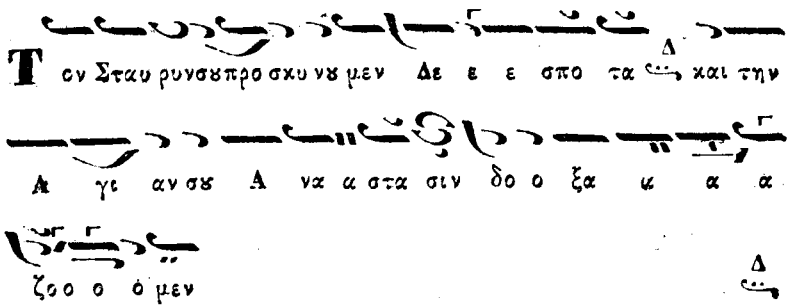 Τον Σταυ ρυνσȣπρο σκυ νȣ μεν Δε ε ε σπο τα Δ και την
Α γι αν σȣ Α να α στα σιν δο ο ξα α α α
ζο ο ο ὁ μεν Δ